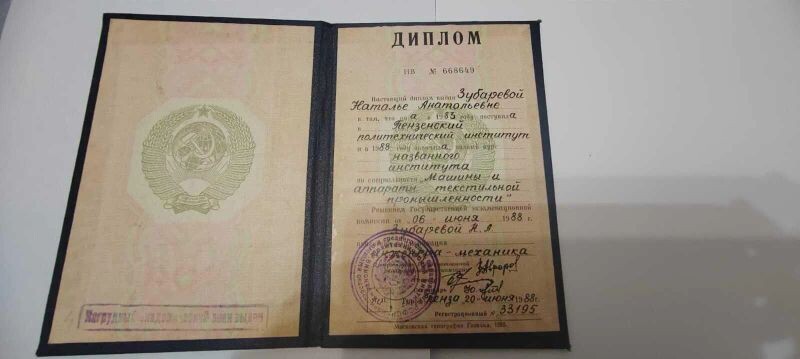 ДИПЛОМ
ИВ № 668649
Настоящий диплом выдан Зубаревой
Наталье Анатольевне
в том, что она в 1983 году поступила
в Пензенский
политехнический институт
и в 1988 году окончила полный курс
названного
института
по специальности „Машины и
аппараты текстильной
промышленности"
Решением Государственной экзаменационной
комиссии от 06 июня 1988 г.
Зубаревой Н.А.
инженера-механика
Пенза 20 июня 1988 г.
Регистрационный № 33195
Московская типография Гознака.
Нагрудный